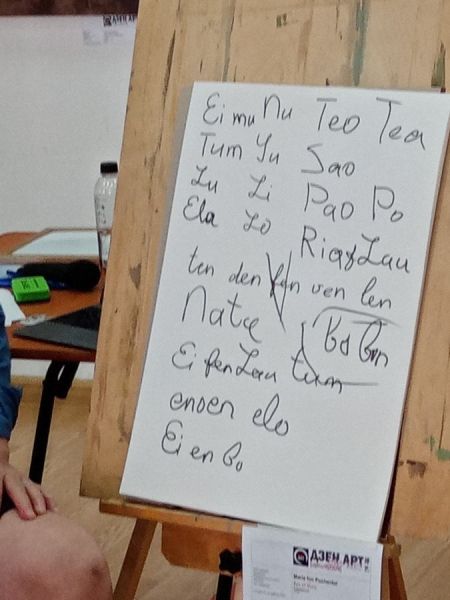 Ei mu Nu Teo Tea
Tum Yu Sao
Lu Li Pao Po
Ela Lo Riaf Lau
ten den fan ven len
Nate Bo
Ei fen Lau tum
enoen elo
Ei en Bo
ДЗЕН АРТ
ДЗЕН АРТ